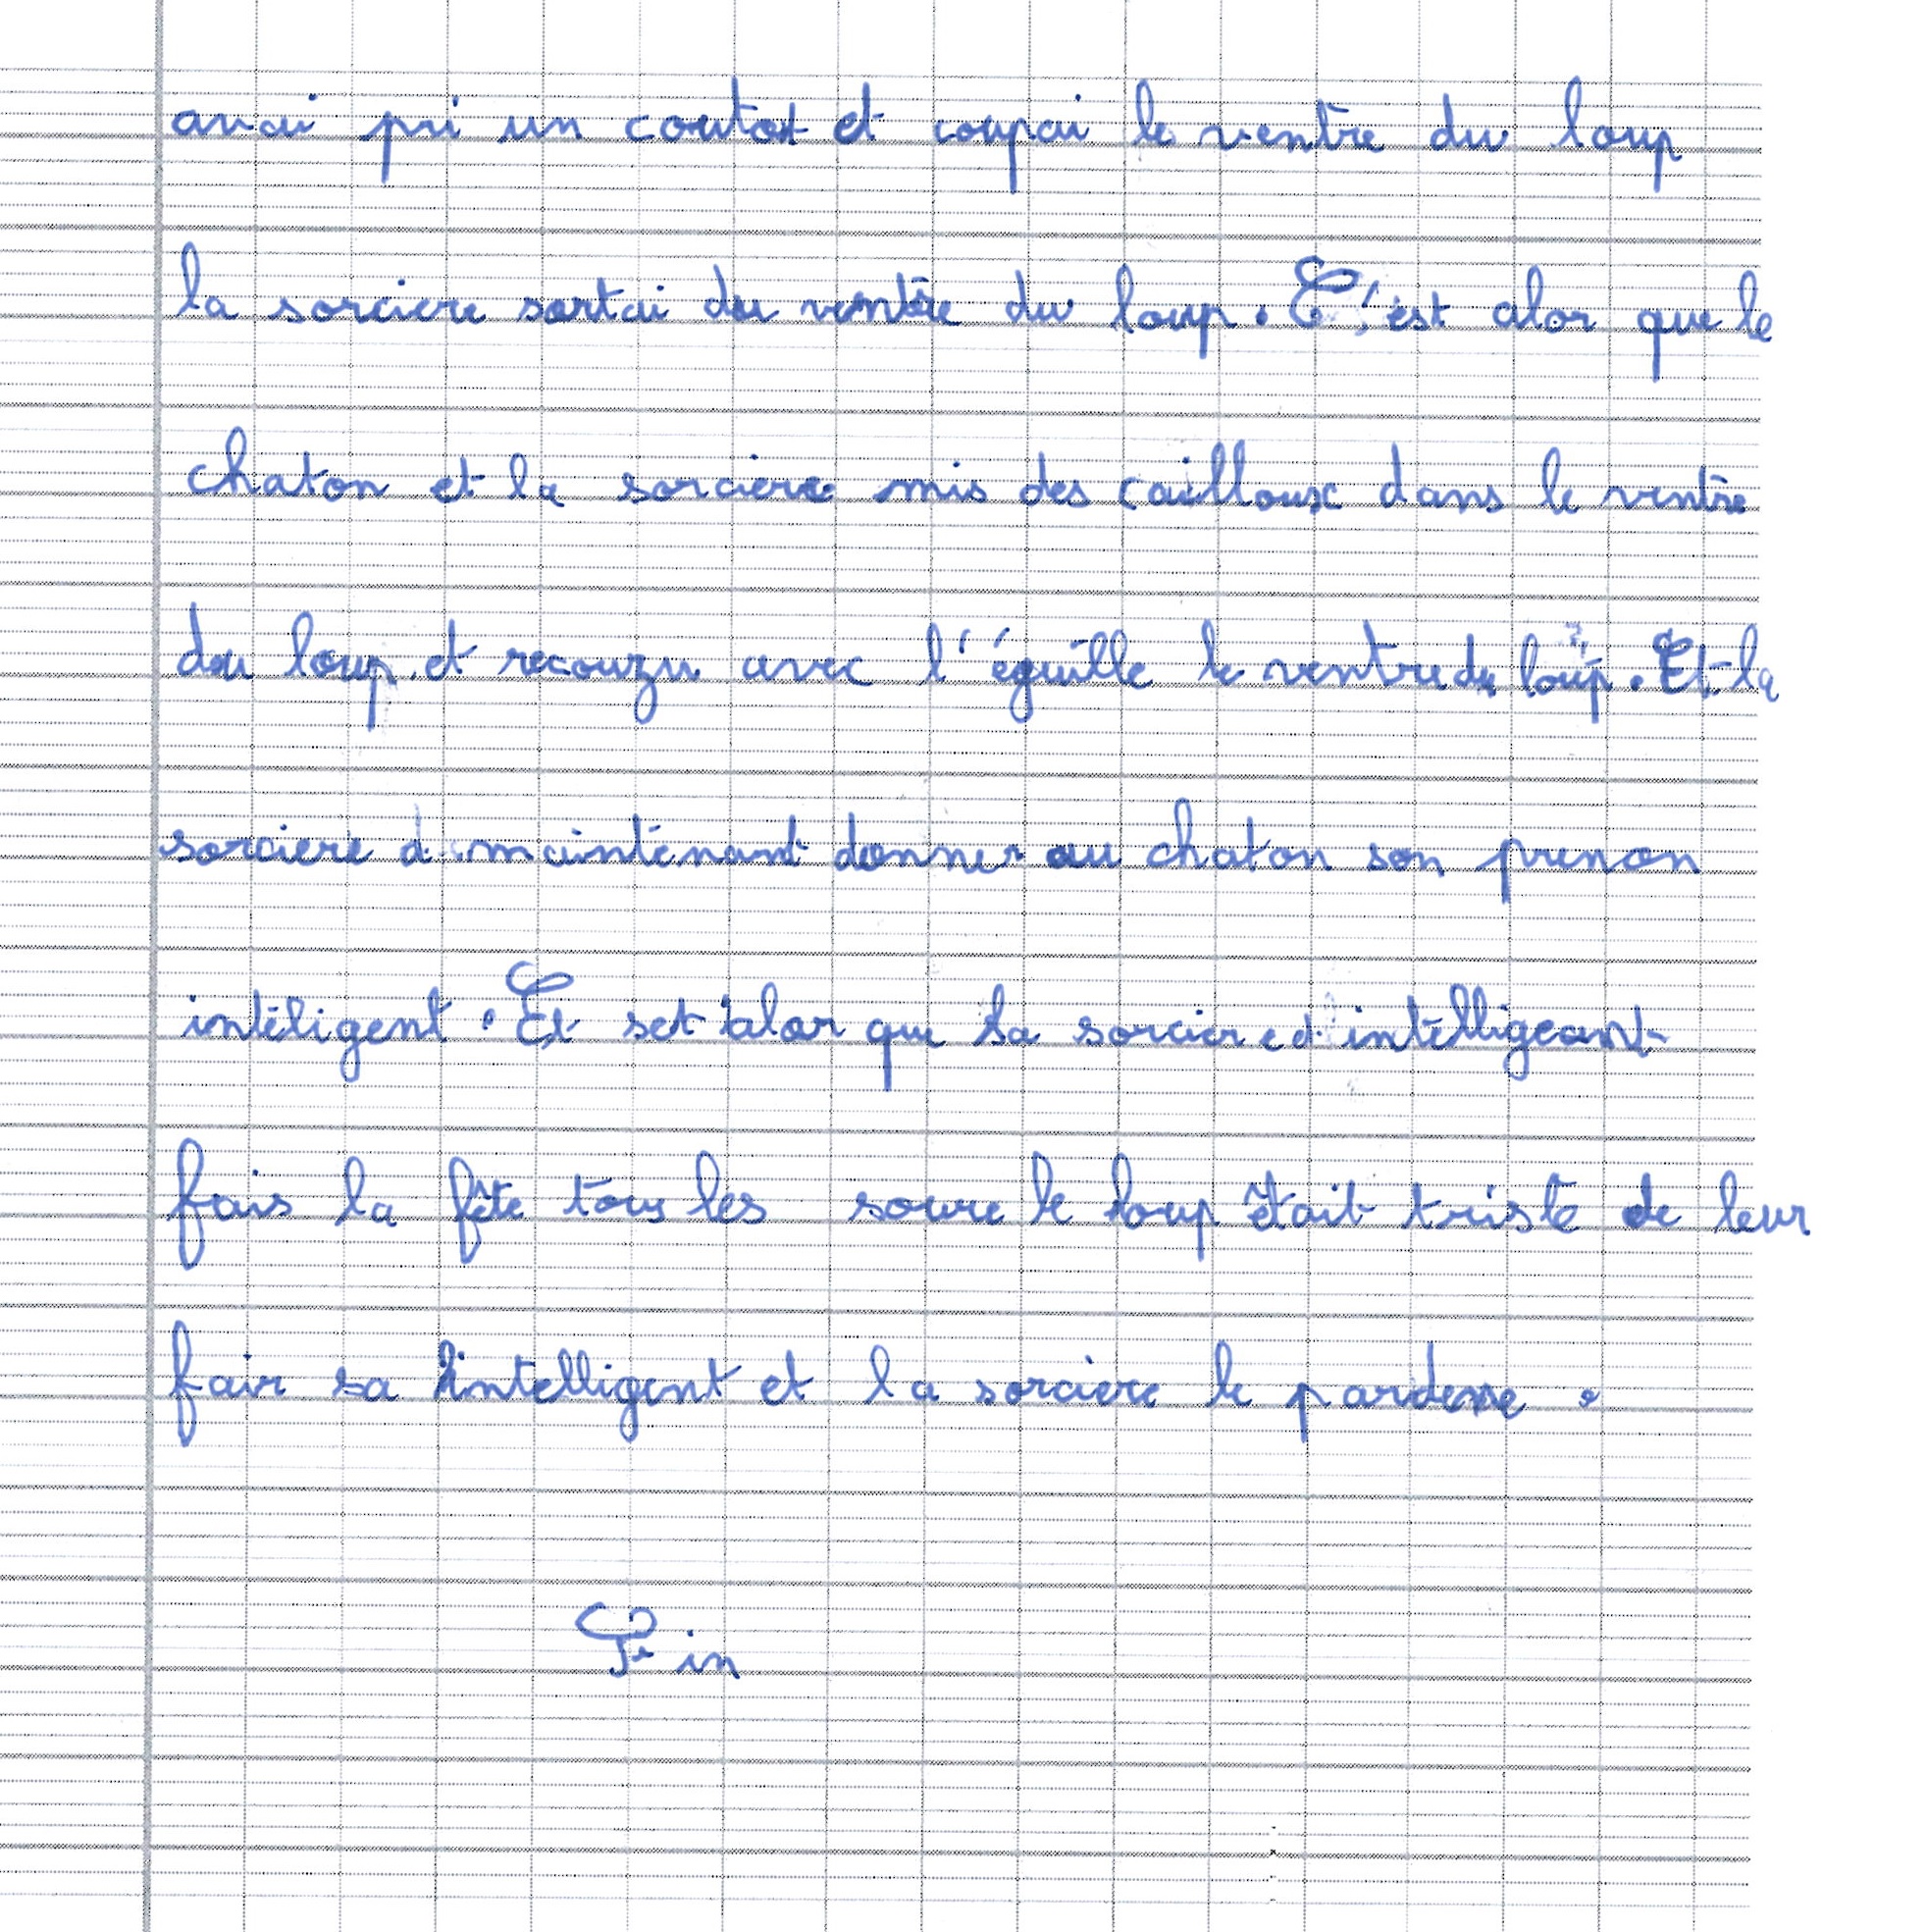 avai pri un coutot et coupai le ventre du loup
la sorciere sortai du ventre du loup. C'est alor que le
chaton et la sorciere mis des cailloux dans le ventre
du loup et recouzu avec l'éguille le ventre du loup. Et la
sorciere a maintenant donner au chaton son prenon
inteligent. Et set alor que la sorcier et intelligeant
fais la fête tous les soure le loup était triste de leur
fair sa intelligent et la sorcière le pardone.
Fin